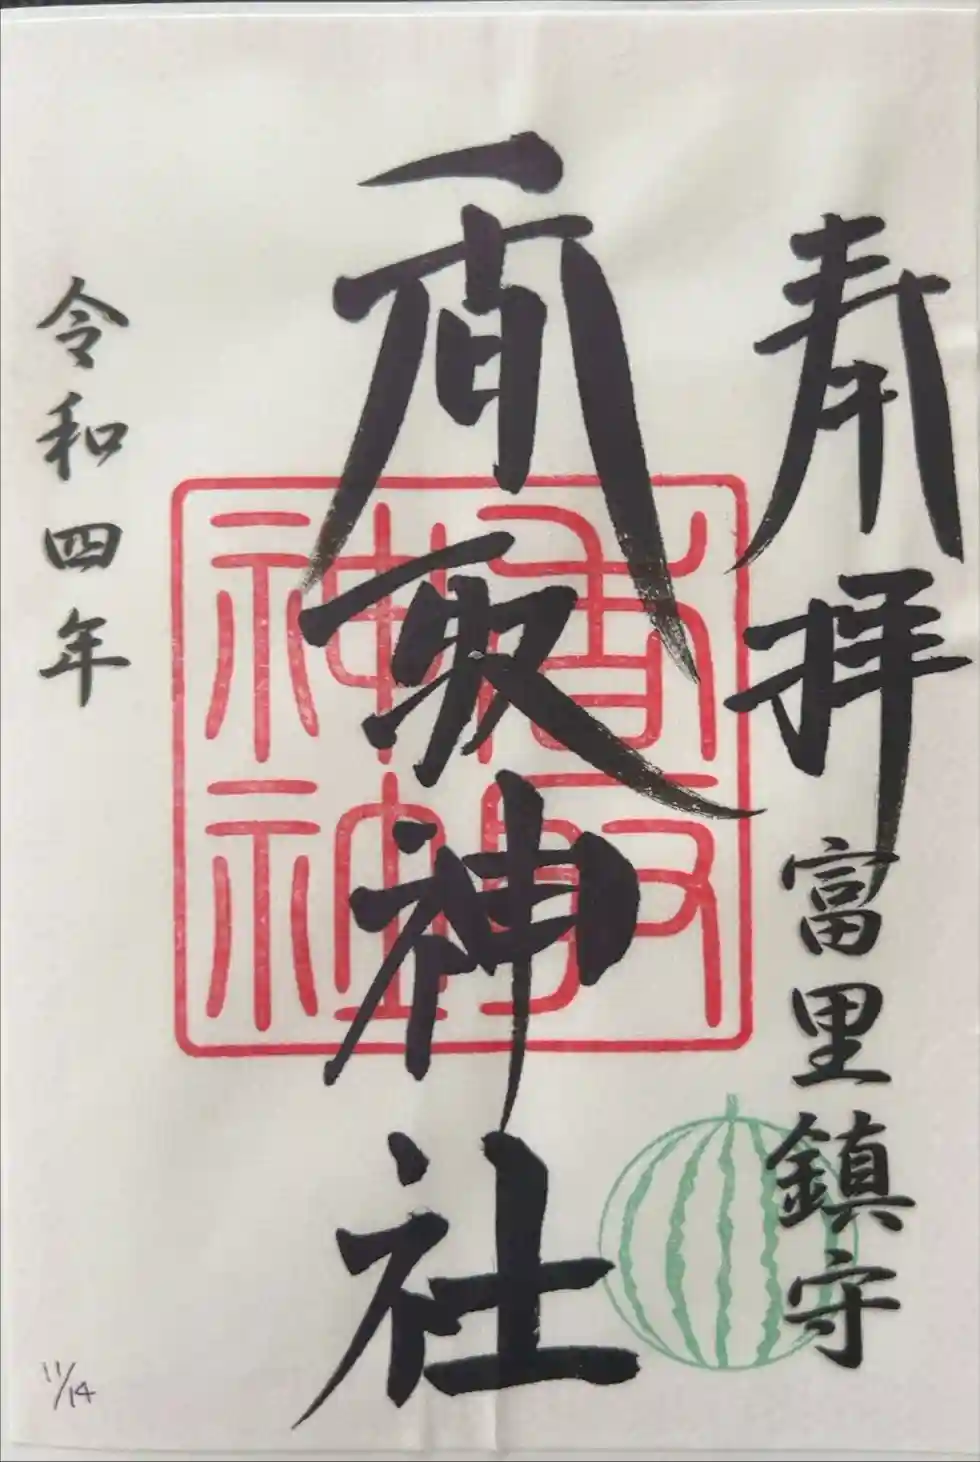 奉拝
富里鎮守
香取神社
香取神社
令和四年
11/14